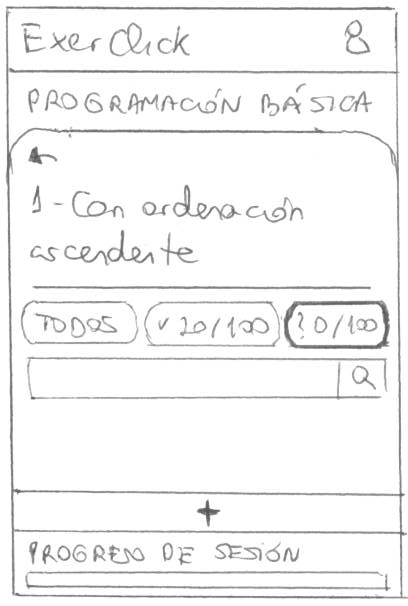 ExerClick
PROGRAMACIÓN BÁSICA
1-Con ordenación
ascendente
TODOS ✓ 20/100 ? 0/100
+
PROGRESO DE SESIÓN